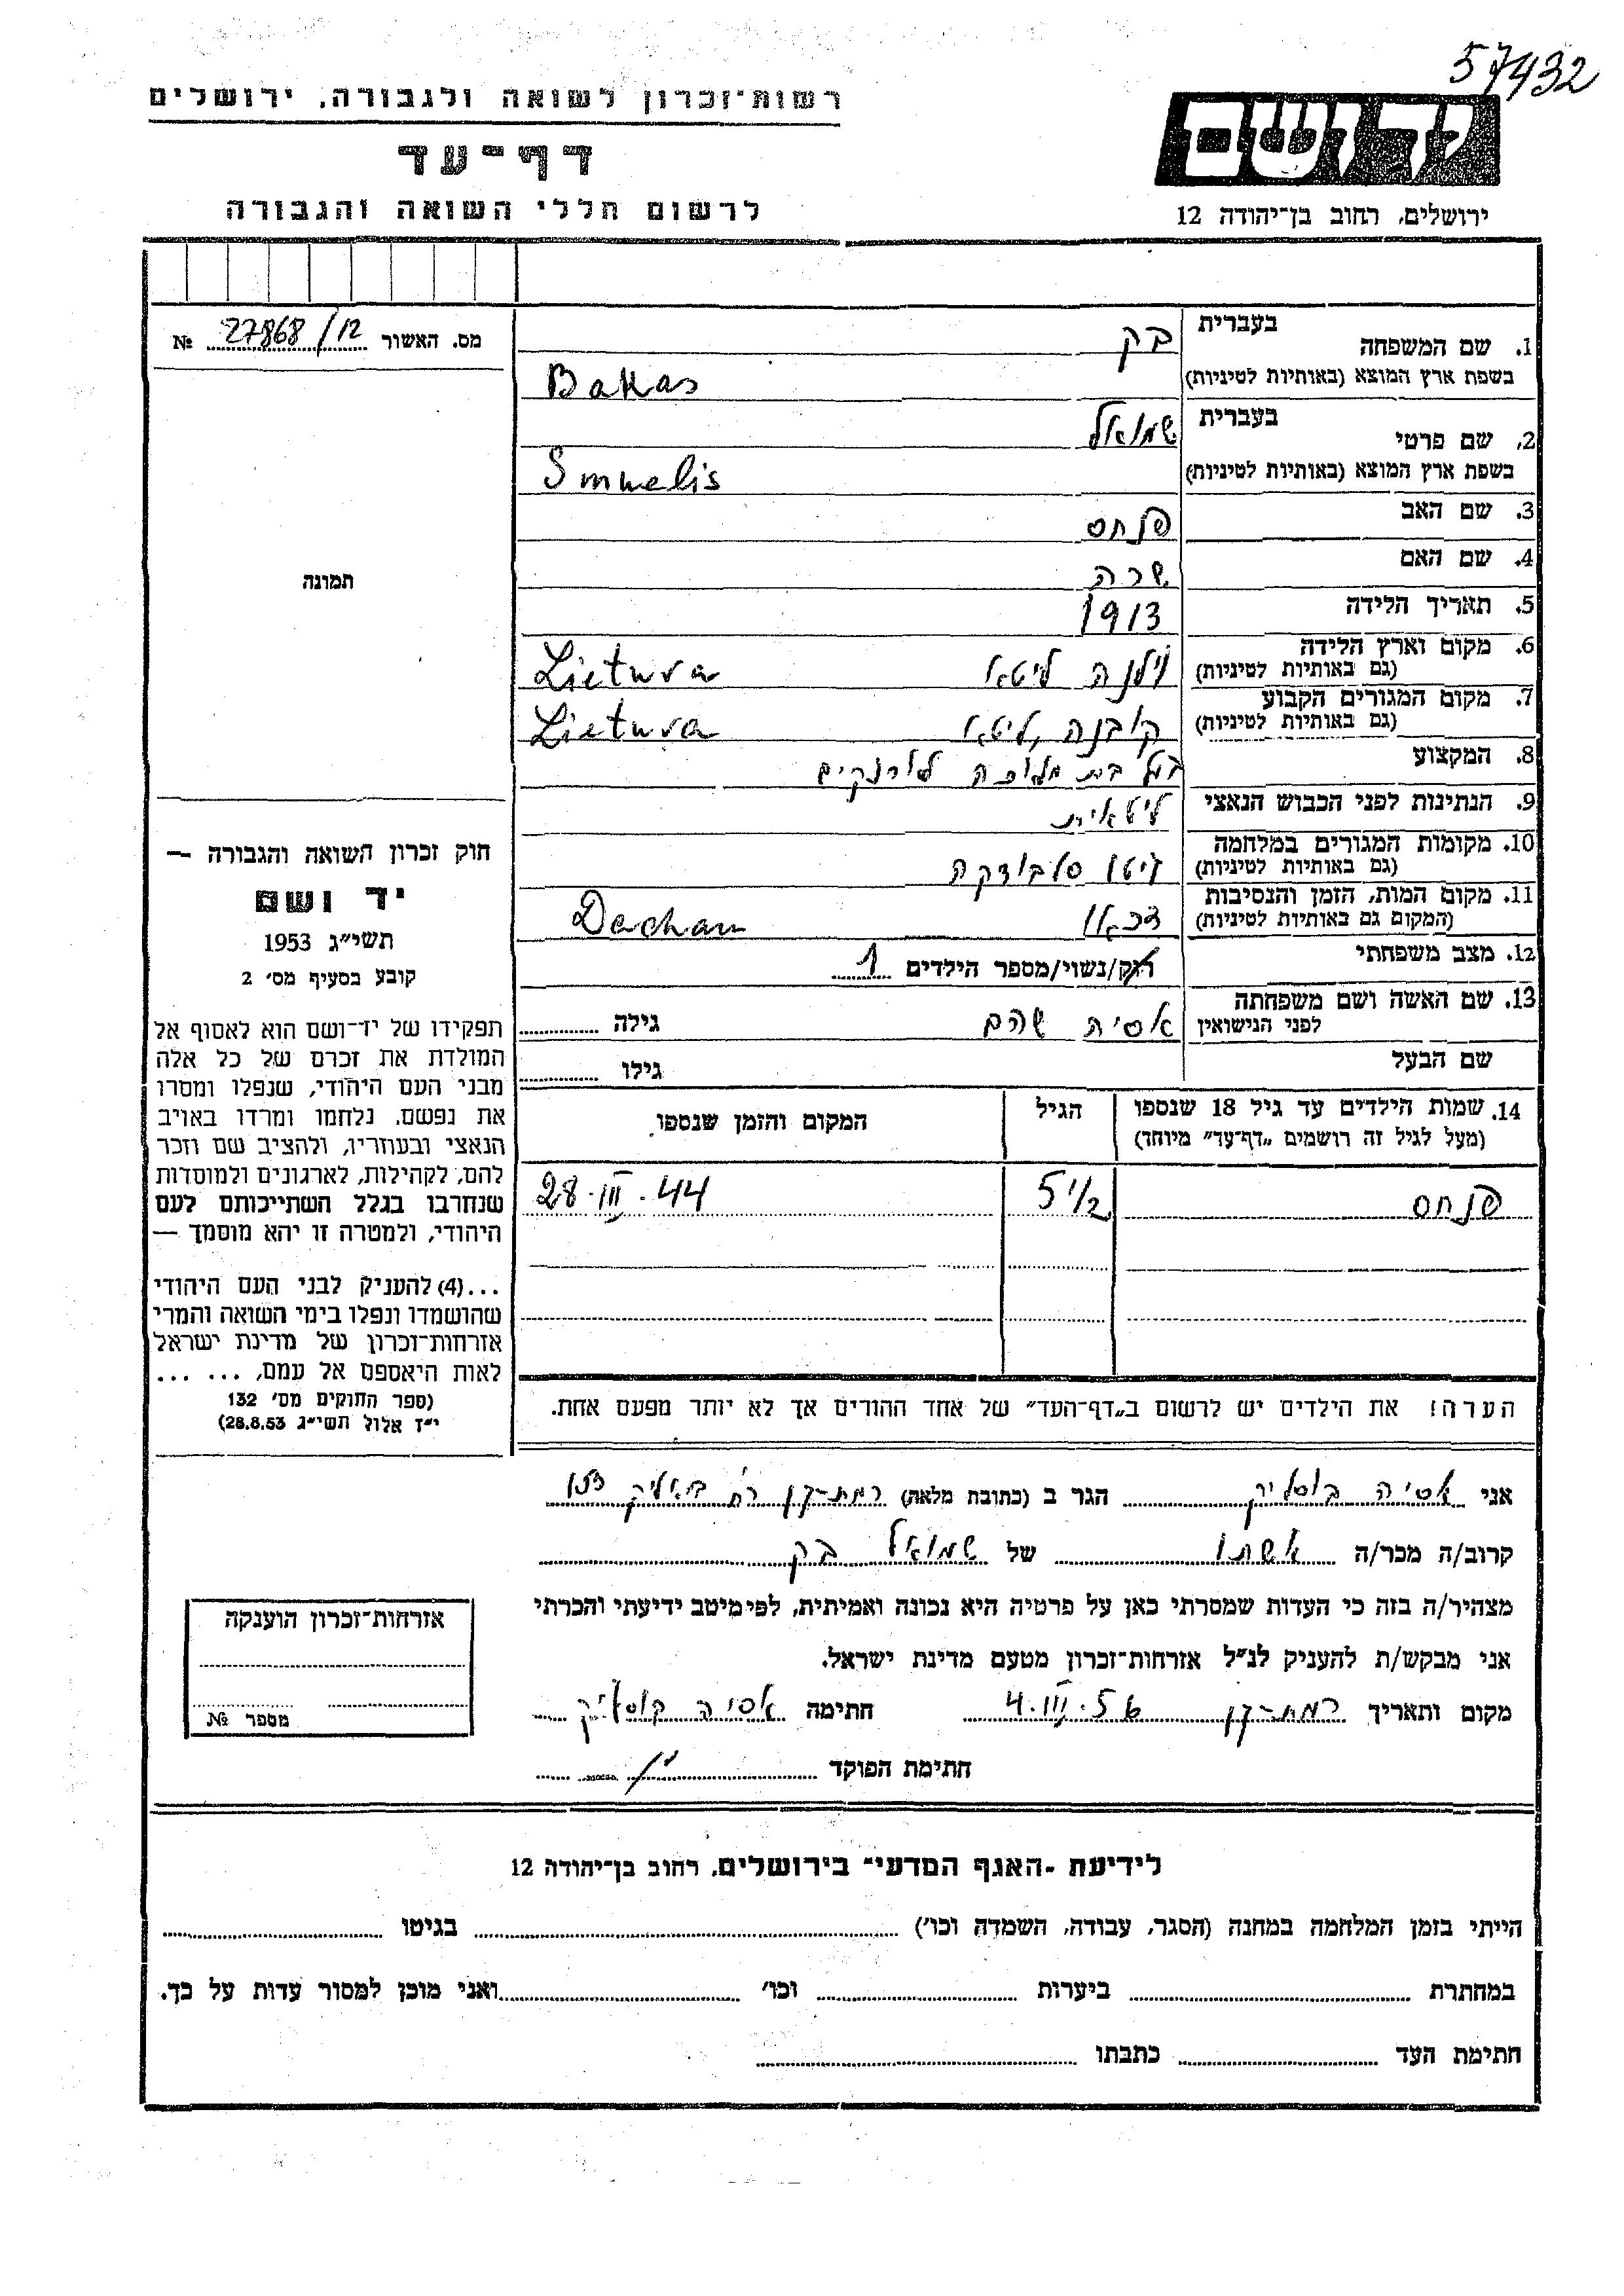 57432
יד ושם
ירושלים, רחוב בן־יהודה 12
רשות־זכרון לשואה ולגבורה, ירושלים
דף־עד
לרשום חללי השואה והגבורה
מס. האשור 27868/12 №
תמונה
1. שם המשפחה בעברית בק
בשפת ארץ המוצא (באותיות לטיניות) Bakas
2. שם פרטי בעברית שמואל
בשפת ארץ המוצא (באותיות לטיניות) Smuelis
3. שם האב פנחס
4. שם האם שרה
5. תאריך הלידה 1913
6. מקום וארץ הלידה וילנה ליטא Lietuva
(גם באותיות לטיניות)
7. מקום המגורים הקבוע קובנה, ליטא Lietuva
(גם באותיות לטיניות)
8. המקצוע בעל בית חרושת
9. הנתינות לפני הכבוש הנאצי ליטאית
10. מקומות המגורים במלחמה גיטו סלבודקה
(גם באותיות לטיניות)
11. מקום המות, הזמן והנסיבות דכאו Dachau
(המקום גם באותיות לטיניות)
12. מצב משפחתי רוק/נשוי/מספר הילדים 1
13. שם האשה ושם משפחתה אסיה שהם גילה
לפני הנישואין
שם הבעל גילו
14. שמות הילדים עד גיל 18 שנספו הגיל המקום והזמן שנספו
(מעל לגיל זה רושמים „דף־עד" מיוחד)
פנחס 5 1/2 28.III.44
הערה! את הילדים יש לרשום ב„דף־העד" של אחד ההורים אך לא יותר מפעם אחת.
חוק זכרון השואה והגבורה —
יד ושם
תשי"ג 1953
קובע בסעיף מס' 2
תפקידו של יד־ושם הוא לאסוף אל
המולדת את זכרם של כל אלה
מבני העם היהודי, שנפלו ומסרו
את נפשם, נלחמו ומרדו באויב
הנאצי ובעוזריו, ולהציב שם וזכר
להם, לקהילות, לארגונים ולמוסדות
שנחרבו בגלל השתייכותם לעם
היהודי, ולמטרה זו יהא מוסמך —
...(4) להעניק לבני העם היהודי
שהושמדו ונפלו בימי השואה והמרי
אזרחות־זכרון של מדינת ישראל
לאות היאספם אל עמם, ... ...
(ספר החוקים מס' 132
י"ז אלול תשי"ג 28.8.53)
אני אסיה הגר ב (כתובת מלאה) רמת-גן רח' ביאליק 153
קרוב/ה מכר/ה אשתו של שמואל בק
מצהיר/ה בזה כי העדות שמסרתי כאן על פרטיה היא נכונה ואמיתית, לפי מיטב ידיעתי והכרתי
אני מבקש/ת להעניק לנ"ל אזרחות־זכרון מטעם מדינת ישראל.
מקום ותאריך רמת-גן 4.III.56 חתימה אסיה
חתימת הפוקד
אזרחות־זכרון הוענקה
מספר №
לידיעת „האגף המדעי" בירושלים, רחוב בן־יהודה 12
הייתי בזמן המלחמה במחנה (הסגר, עבודה, השמדה וכו') בגיטו
במחתרת ביערות וכו' ואני מוכן למסור עדות על כך.
חתימת העד כתבתו